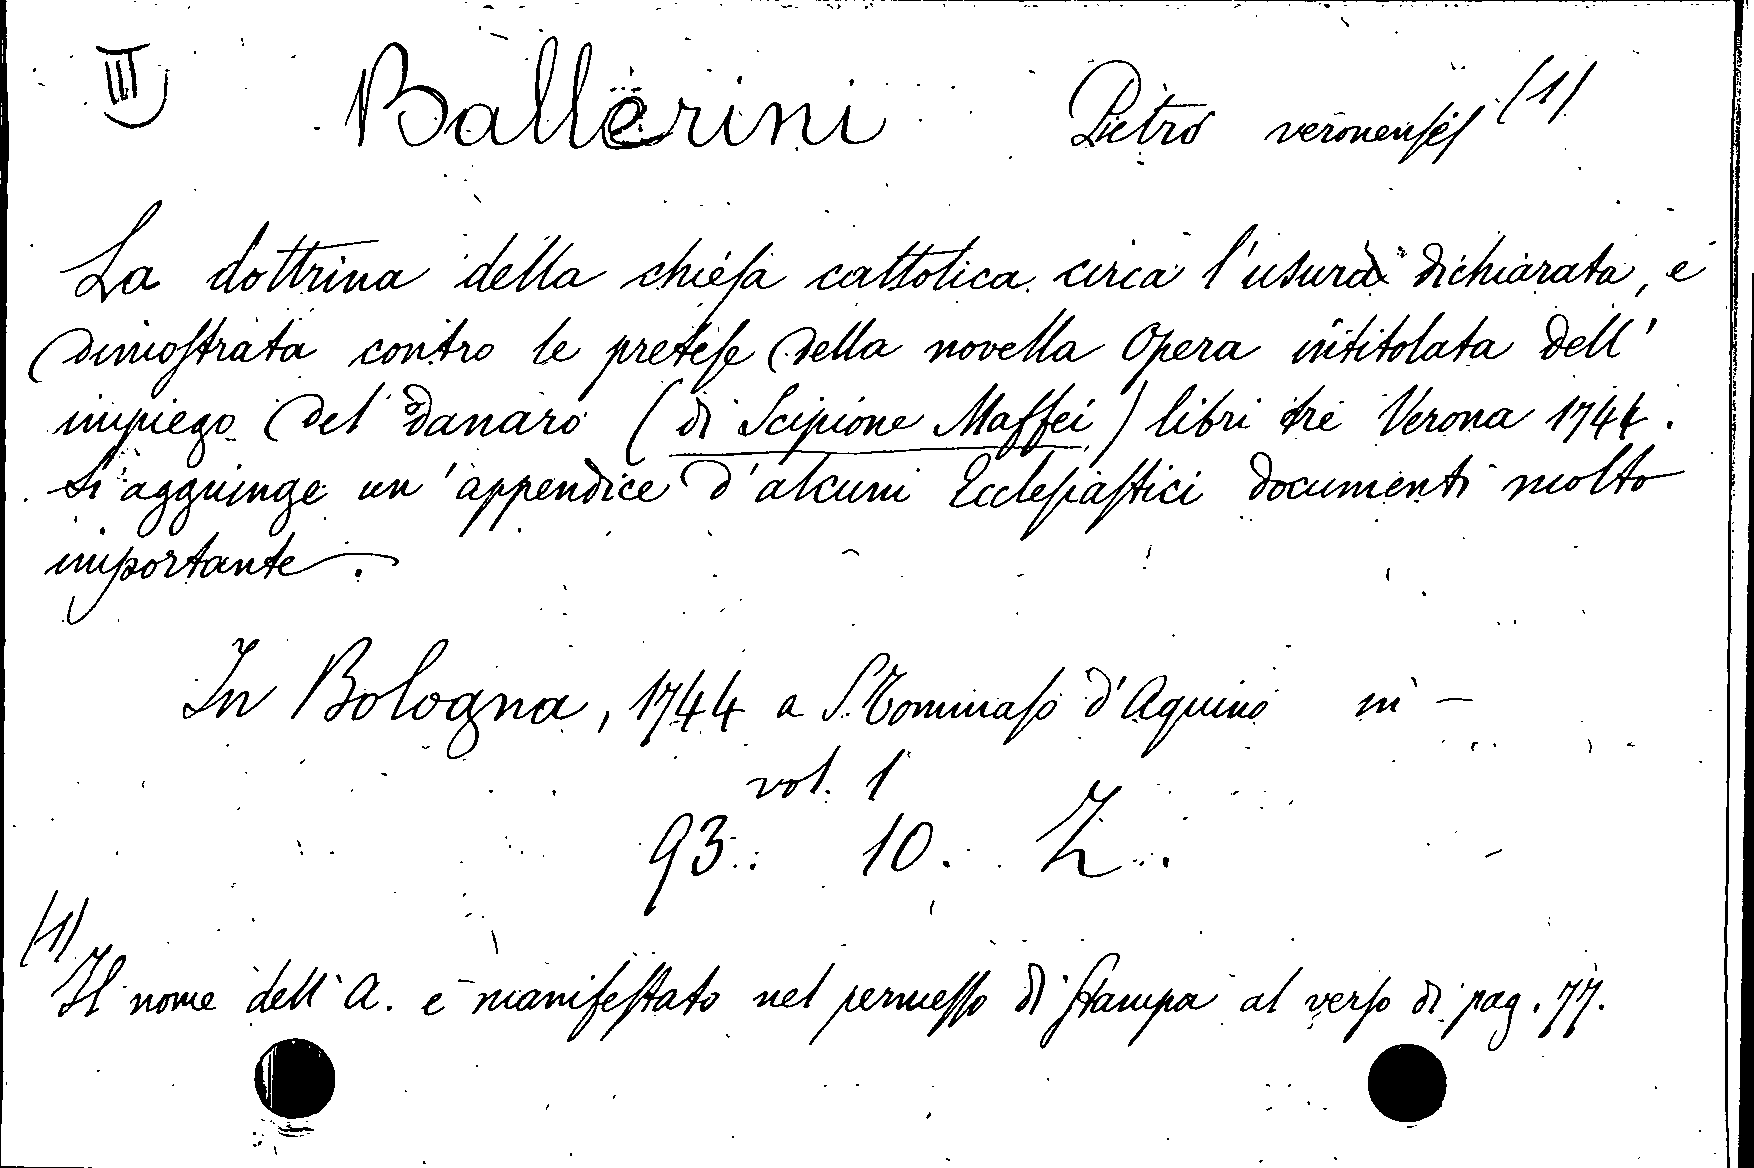 III Ballerini Pietro veronese (1)
La dottrina della chiesa cattolica circa l'usura dichiarata, e
dimostrata contro le pretese della novella Opera intitolata dell'
impiego del danaro (di Scipione Maffei) libri tre Verona 1744.
Si aggiunge un'appendice d'alcuni Ecclesiastici documenti molto
importante.
In Bologna, 1744 a S. Tommaso d'Aquino in -
vol. 1
93. 10. Z.
(1)
Il nome dell'A. e manifestato nel permesso di stampa al verso di pag. 77.